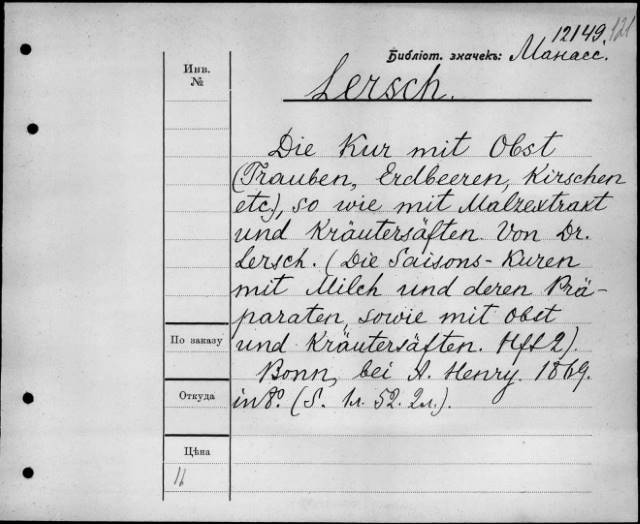 12149. 121
Библіот. значекъ: Манасс.
Инв.
№
Lersch.
Die Kur mit Obst
(Trauben, Erdbeeren, Kirschen
etc), so wie mit Malzextrakt
und Kräutersäften. Von Dr.
Lersch. (Die Saisons-Kuren
mit Milch und deren Prä-
paraten, sowie mit Obst
und Kräutersäften. Hft 2).
Bonn, bei A. Henry. 1869.
in 8°. (S. 1л. 52. 2л.).
По заказу
Откуда
Цѣна